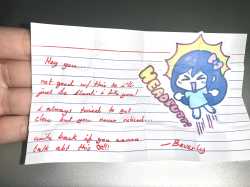 Hey you...
not good w/ this so i'll
just be blunt. i like you!
i always turned to get
close but you never noticed...
write back if you wanna
talk abt this
— Beverley